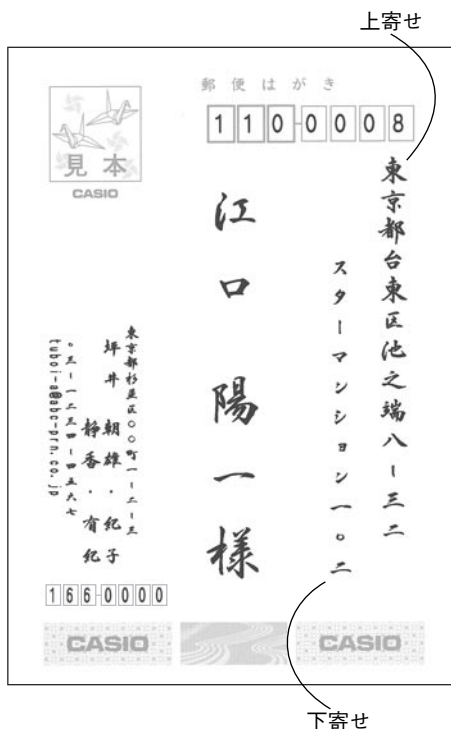 上寄せ
郵便はがき
110-0008
東京都台東区池之端八ー三二
スターマンション一〇二
江口陽一様
見本
CASIO
東京都杉並区〇〇町一ー二ー三
坪井 朝雄・紀子
静香・有紀
〇三ー一二三四ー四五六七
tuboi-a@abc-prn.co.jp
166-0000
CASIO
CASIO
下寄せ